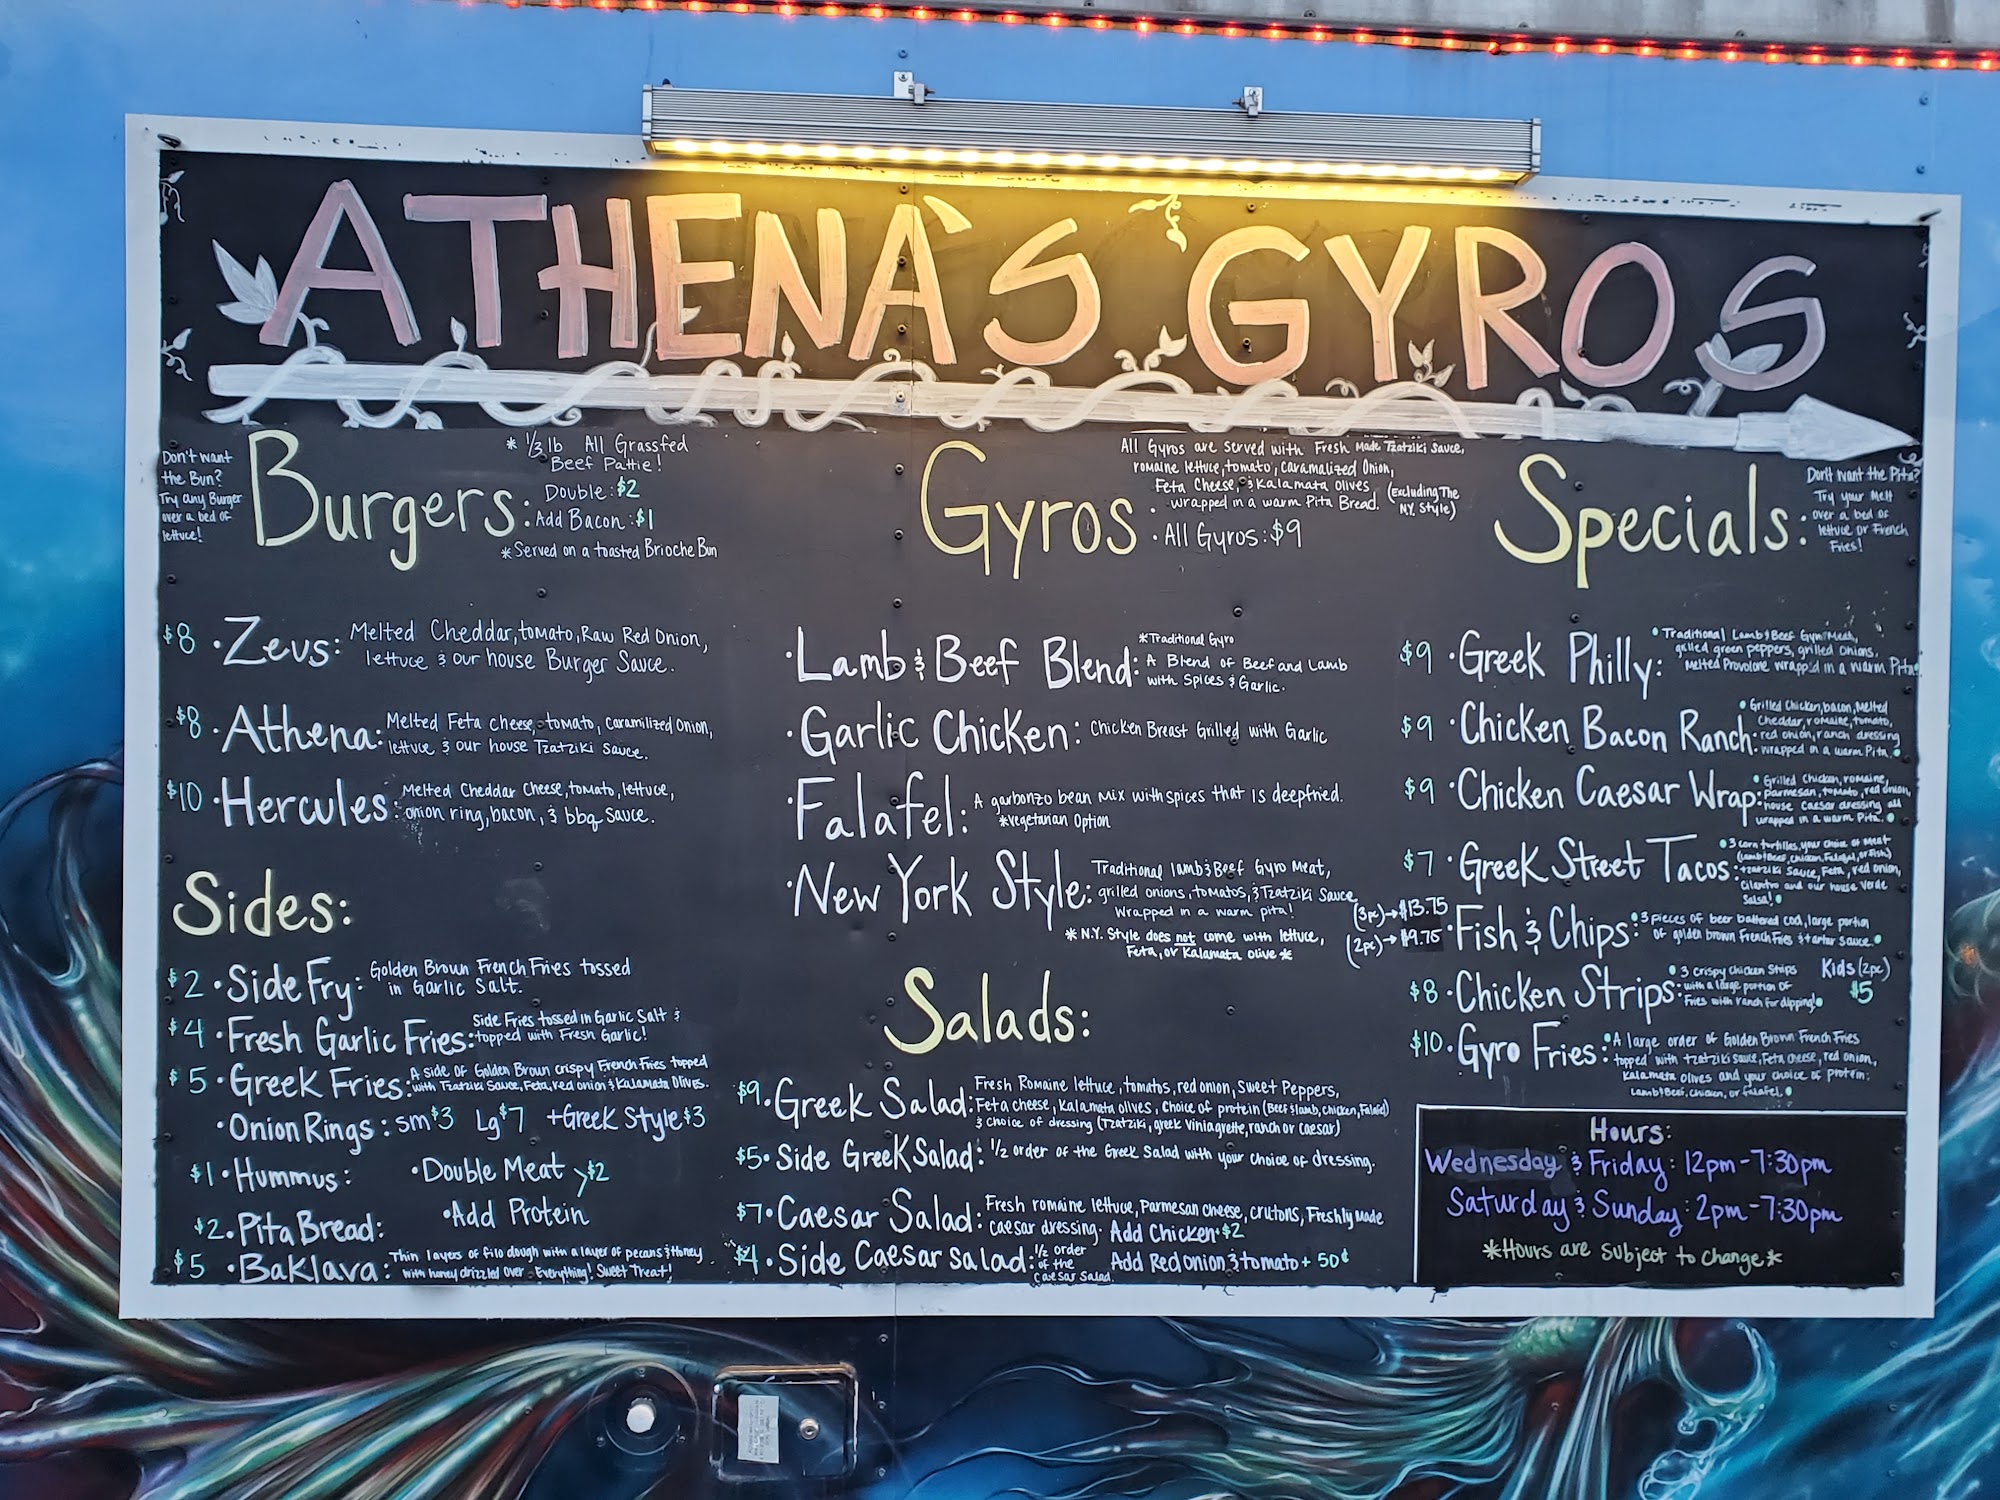 ATHENA'S GYROS
Don't want
the Bun?
Try any Burger
over a bed of
lettuce!
Burgers:
* 1/3 lb All Grassfed
Beef Pattie!
Double: $2
Add Bacon: $1
*Served on a toasted Brioche Bun
$8 • Zeus: Melted Cheddar, tomato, Raw Red Onion,
lettuce & our house Burger Sauce.
$8 • Athena: Melted Feta cheese, tomato, caramilized onion,
lettuce & our house Tzatziki sauce.
$10 • Hercules: Melted Cheddar Cheese, tomato, lettuce,
onion ring, bacon, & bbq sauce.
Sides:
$2 • Side Fry: Golden Brown French Fries tossed
in Garlic Salt.
$4 • Fresh Garlic Fries: Side Fries tossed in Garlic Salt &
topped with Fresh Garlic!
$5 • Greek Fries: A side of Golden Brown crispy French Fries topped
with Tzatziki Sauce, Feta, red onion & Kalamata Olives.
• Onion Rings: sm $3 Lg $7 + Greek Style $3
$1 • Hummus: • Double Meat > $2
$2 • Pita Bread: • Add Protein
$5 • Baklava: Thin layers of filo dough with a layer of pecans & Honey
with honey drizzled over Everything! Sweet Treat!
Gyros
All Gyros are served with Fresh Made Tzatziki Sauce,
romaine lettuce, tomato, caramalized Onion,
Feta Cheese, & Kalamata olives
• wrapped in a warm Pita Bread. (Excluding The
N.Y. Style)
• All Gyros: $9
• Lamb & Beef Blend: *Traditional Gyro
A Blend of Beef and Lamb
with Spices & Garlic.
• Garlic Chicken: Chicken Breast Grilled with Garlic
• Falafel: A garbonzo bean mix with spices that is deepfried.
*Vegetarian Option
• New York Style: Traditional lamb & Beef Gyro Meat,
grilled onions, tomatos, & Tzatziki Sauce
Wrapped in a warm pita!
* N.Y. Style does not come with lettuce,
Feta, or Kalamata olive *
Salads:
$9 • Greek Salad: Fresh Romaine lettuce, tomatos, red onion, Sweet Peppers,
Feta cheese, Kalamata olives, Choice of protein (Beef & lamb, chicken, Falafel)
& Choice of dressing (Tzatziki, greek Viniagrette, ranch or caesar)
$5 • Side Greek Salad: 1/2 order of the Greek Salad with your choice of dressing.
$7 • Caesar Salad: Fresh romaine lettuce, Parmesan cheese, crutons, Freshly Made
caesar dressing. Add Chicken • $2
$4 • Side Caesar salad: 1/2 order
of the
Caesar Salad.
Add Red onion & tomato + 50¢
Specials:
Don't want the Pita?
Try your Melt
over a bed of
lettuce or French
Fries!
$9 • Greek Philly: • Traditional Lamb & Beef Gyro Meat,
grilled green peppers, grilled onions,
Melted Provolone wrapped in a warm Pita
$9 • Chicken Bacon Ranch: • Grilled Chicken, bacon, Melted
Cheddar, romaine, tomato,
red onion, ranch dressing
wrapped in a warm Pita. •
$9 • Chicken Caesar Wrap: • Grilled Chicken, romaine,
parmesan, tomato, red onion,
house caesar dressing all
wrapped in a warm Pita. •
$7 • Greek Street Tacos: • 3 corn tortillas, your choice of Meat
(Lamb & Beef, chicken, Falafel, or Fish)
tzatziki Sauce, Feta, red onion,
Cilantro and our house Verde
Salsa! •
(3pc) → $13.75
(2pc) → $9.75
• Fish & Chips: • 3 pieces of beer battered cod, large portion
of golden brown French Fries & tartar sauce. •
$8 • Chicken Strips: • 3 Crispy chicken Strips
with a large portion of
Fries with ranch for dipping! •
Kids (2pc)
$5
$10 • Gyro Fries: • A large order of Golden Brown French Fries
topped with tzatziki sauce, Feta cheese, red onion,
Kalamata olives and your choice of Protein:
Lamb & Beef, chicken, or falafel. •
Hours:
Wednesday & Friday: 12pm-7:30pm
Saturday & Sunday: 2pm-7:30pm
*Hours are Subject to Change*